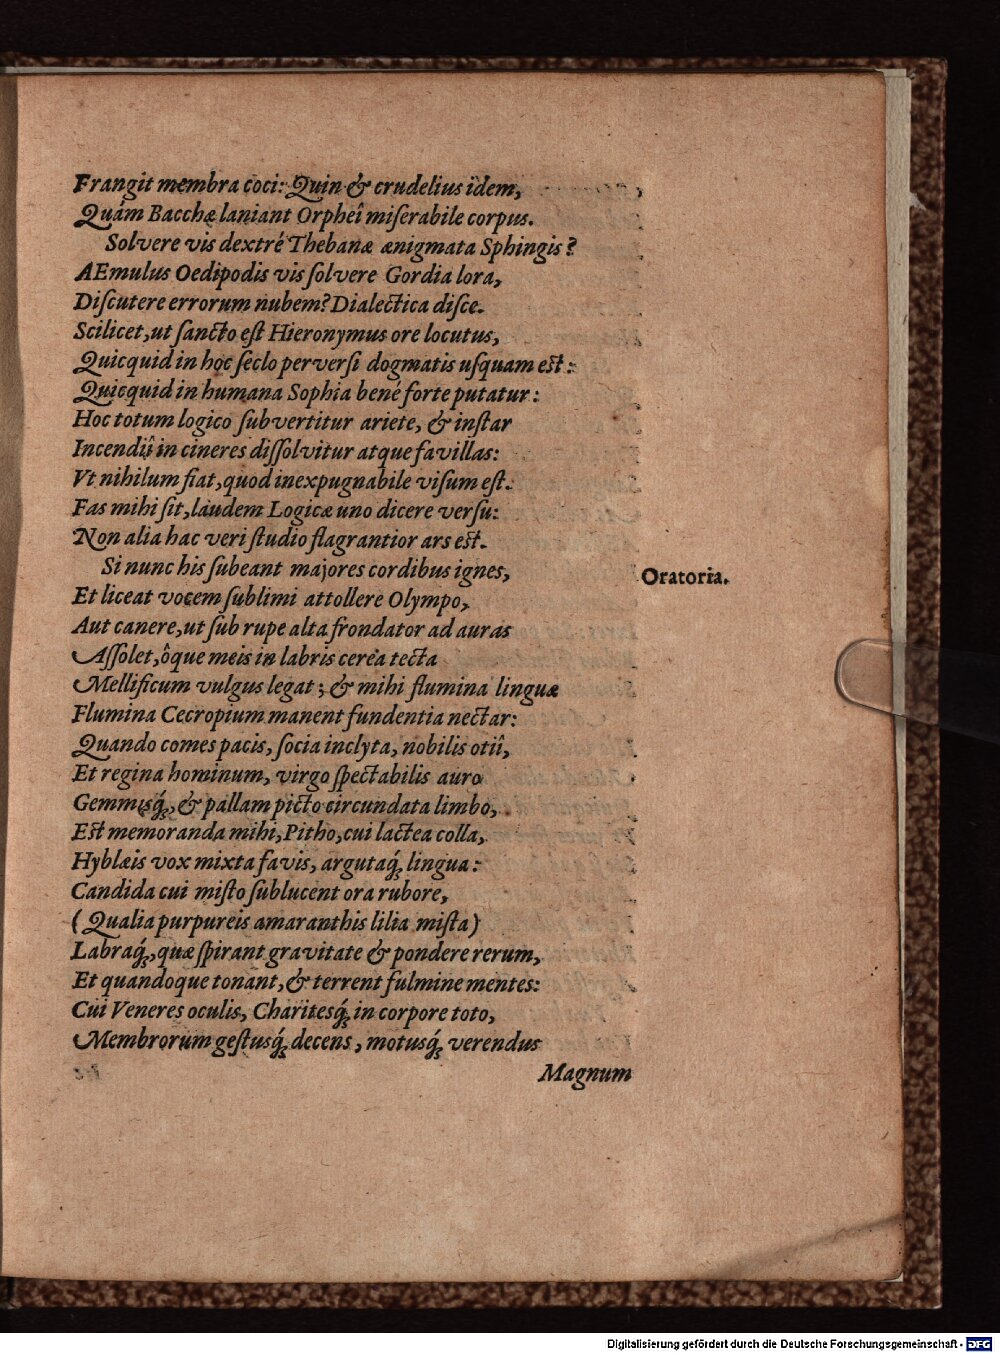 Frangit membra coci: Quin & crudelius idem,
Quám Bacchæ laniant Orpheî miſerabile corpus.
Solvere vis dextré Thebanæ ænigmata Sphingis?
AEmulus Oedipodis vis ſolvere Gordia lora,
Diſcutere errorum nubem? Dialectica diſce.
Scilicet, ut ſancto eſt Hieronymus ore locutus,
Quicquid in hoc ſeclo perverſi dogmatis uſquam eſt:
Quicquid in humana Sophia bené forte putatur:
Hoc totum logico ſubvertitur ariete, & inſtar
Incendiî in cineres diſſolvitur atque favillas:
Vt nihilum fiat, quod inexpugnabile viſum eſt.
Fas mihi ſit, laudem Logicæ uno dicere verſu:
Non alia hac veri ſtudio flagrantior ars eſt.
Si nunc his ſubeant majores cordibus ignes,
Oratoria.
Et liceat vocem ſublimi attollere Olympo,
Aut canere, ut ſub rupe alta frondator ad auras
Aſſolet, ôque meis in labris cerea tecta
Mellificum vulgus legat; & mihi flumina linguæ
Flumina Cecropium manent fundentia nectar:
Quando comes pacis, ſocia inclyta, nobilis otiî,
Et regina hominum, virgo ſpectabilis auro
Gemmisq́;, & pallam picto circundata limbo,
Eſt memoranda mihi, Pitho, cui lactea colla,
Hyblæis vox mixta favis, argutaq́; lingua:
Candida cui miſto ſublucent ora rubore,
(Qualia purpureis amaranthis lilia miſta)
Labraq́;, quæ ſpirant gravitate & pondere rerum,
Et quandoque tonant, & terrent fulmine mentes:
Cui Veneres oculis, Charitesq́; in corpore toto,
Membrorum geſtusq́; decens, motusq́; verendus
Magnum
Digitalisierung gefördert durch die Deutsche Forschungsgemeinschaft - DFG